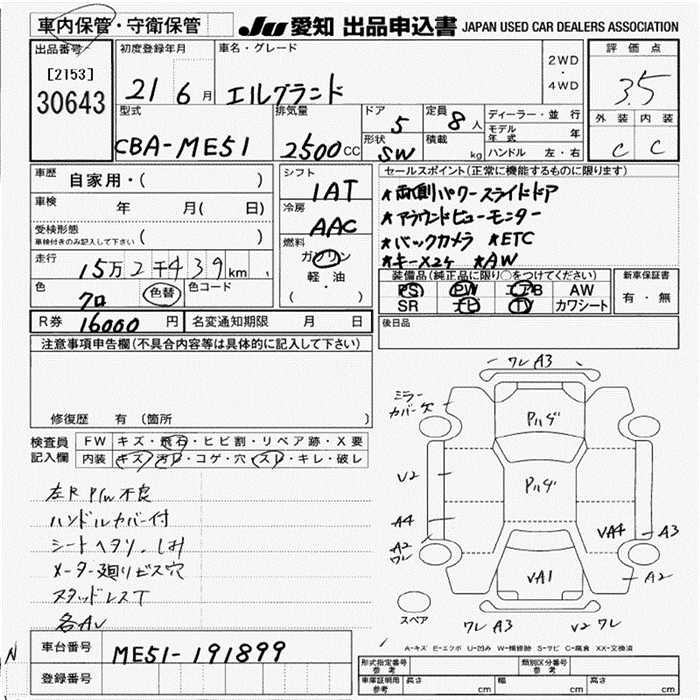 車内保管・守衛保管
JU 愛知 出品申込書 JAPAN USED CAR DEALERS ASSOCIATION
出品番号
[2153]
30643
初度登録年月
21 6月
車名・グレード
エルグランド
2WD
・
4WD
評価点
3.5
外装 内装
C C
型式
CBA-ME51
排気量
2500cc
ドア
5
定員
8人
形状
SW
積載
kg
ディーラー・並行
モデル年式 年
ハンドル 左・右
車歴
自家用・( )
車検
年 月( 日)
受検形態
車検付きのみ記入して下さい ( )
走行
15万2千439km
色
クロ
色替
色コード
シフト
IAT
冷房
AAC
燃料
ガソリン
軽・油
( )
セールスポイント(正常に機能するものに限ります)
★両側パワースライドドア
★アラウンドビューモニター
★バックカメラ ★ETC
★キー×2ヶ ★AW
装備品(純正品に限り○をつけてください)
PS PW エアB AW
SR ナビ TV カワシート
新車保証書
有・無
R券 16000円
名変通知期限 月 日
後日品
注意事項申告欄(不具合内容等は具体的に記入して下さい)
修復歴 有(箇所 )
検査員
記入欄
FW キズ・飛石・ヒビ割・リペア跡・X要
内装 キズ・汚レ・コゲ・穴・スレ・キレ・破レ
左R P/W不良
ハンドルカバー付
シートヘタリ、しみ
メーター廻りビス穴
スタッドレスT
各AU
ワレ A3
ミラー
カバー欠
Pハゲ
Pハゲ
V2
A4
A2
ワレ
VA4
A3
A2
VA1
ワレ A3
V2 ワレ
スペア
A-キズ E-エクボ U-凹み W-補修跡 S-サビ C-腐食 XX-交換済
車台番号
ME51-191899
登録番号
形式指定番号
参考
類別区分番号
参考
車庫証明用
参考
長さ cm
幅 cm
高さ cm